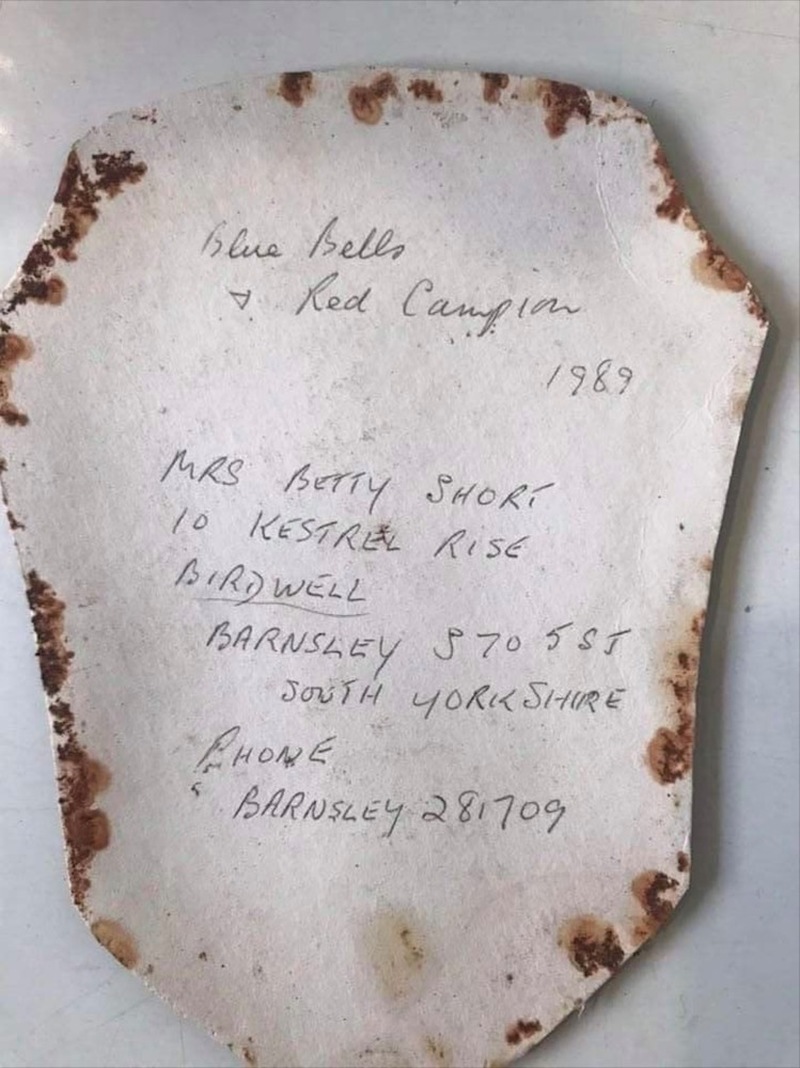 Blue Bells
& Red Campion
1989
MRS BETTY SHORT
10 KESTREL RISE
BIRDWELL
BARNSLEY S70 5SJ
SOUTH YORKSHIRE
PHONE
BARNSLEY 281709